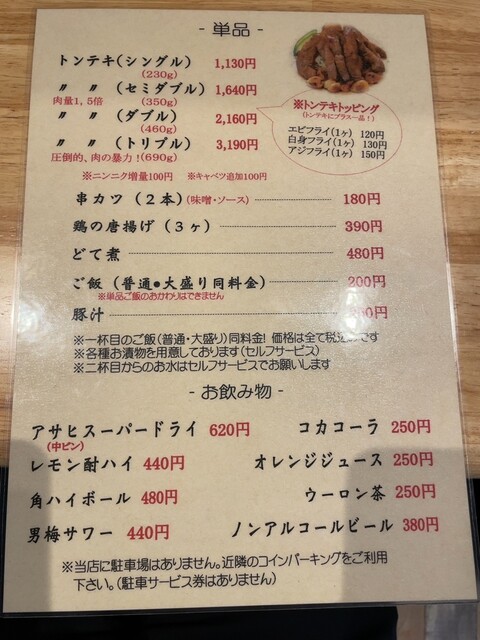 - 単品 -
トンテキ(シングル) 1,130円
(230g)
〃 〃 (セミダブル) 1,640円
肉量1,5倍 (350g)
〃 〃 (ダブル) 2,160円
(460g)
〃 〃 (トリプル) 3,190円
圧倒的、肉の暴力!(690g)
※トンテキトッピング
(トンテキにプラス一品!)
エビフライ(1ヶ) 120円
白身フライ(1ヶ) 130円
アジフライ(1ヶ) 150円
※ニンニク増量100円 ※キャベツ追加100円
串カツ(2本)(味噌・ソース) 180円
鶏の唐揚げ(3ヶ) 390円
どて煮 480円
ご飯(普通●大盛り同料金) 200円
※単品ご飯のおかわりはできません
豚汁 円
※一杯目のご飯(普通・大盛り)同料金! 価格は全て税込みです
※各種お漬物を用意しております(セルフサービス)
※二杯目からのお水はセルフサービスでお願いします
- お飲み物 -
アサヒスーパードライ 620円
(中ビン)
レモン酎ハイ 440円
角ハイボール 480円
男梅サワー 440円
コカコーラ 250円
オレンジジュース 250円
ウーロン茶 250円
ノンアルコールビール 380円
※当店に駐車場はありません。近隣のコインパーキングをご利用
下さい。(駐車サービス券はありません)